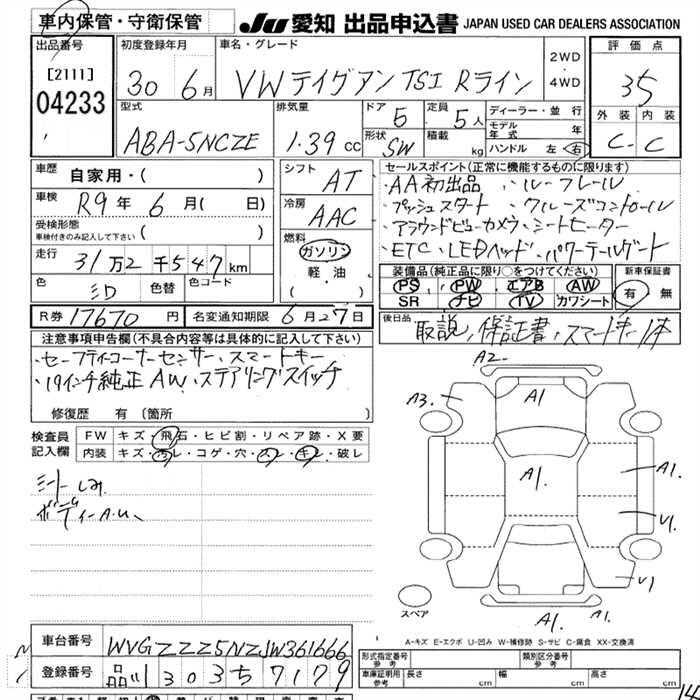 車内保管・守衛保管
JU 愛知 出品申込書 JAPAN USED CAR DEALERS ASSOCIATION
出品番号
[2111]
04233
初度登録年月
30 6月
車名・グレード
VW ティグアン TSI Rライン
2WD
・
4WD
評価点
35
外装 内装
C - C
型式
ABA-5NCZE
排気量
1.39 cc
ドア 5
形状 SW
定員 5人
積載 kg
ディーラー・並行
モデル年式 年
ハンドル 左・右
車歴
自家用・( )
車検
R9年 6月( 日)
受検形態
車検付きのみ記入して下さい ( )
走行
31万2千547km
色
色替
色コード
シフト
AT
冷房
AAC
燃料
ガソリン
軽・油
( )
R券 17670円
名変通知期限 6月27日
セールスポイント(正常に機能するものに限ります)
・AA初出品 ・ルーフレール
・プッシュスタート ・クルーズコントロール
・アラウンドビューカメラ・シートヒーター
・ETC・LEDヘッド・パワーテールゲート
装備品(純正品に限り○をつけてください)
PS PW エアB AW
SR ナビ TV カワシート
新車保証書
有・無
後日品
取説、保証書、スマートキー1本
注意事項申告欄(不具合内容等は具体的に記入して下さい)
・セーフティーコーナーセンサー・スマートキー
・19インチ純正AW・ステアリングスイッチ
修復歴 有(箇所 )
検査員記入欄
FW キズ・飛石・ヒビ割・リペア跡・X要
内装 キズ・汚レ・コゲ・穴・スレ・キレ・破レ
シートしみ
ボディーA.U.
A2
A3
A1
A1
A1
A1.
U1
U1
A1
A1.
スペア
A-キズ E-エクボ U-凹み W-補修跡 S-サビ C-腐食 XX-交換済
車台番号 WVGZZZ5NZJW361666
登録番号 品川 303 ち 7179
形式指定番号 参考
類別区分番号 参考
車庫証明用 参考
長さ cm
幅 cm
高さ cm